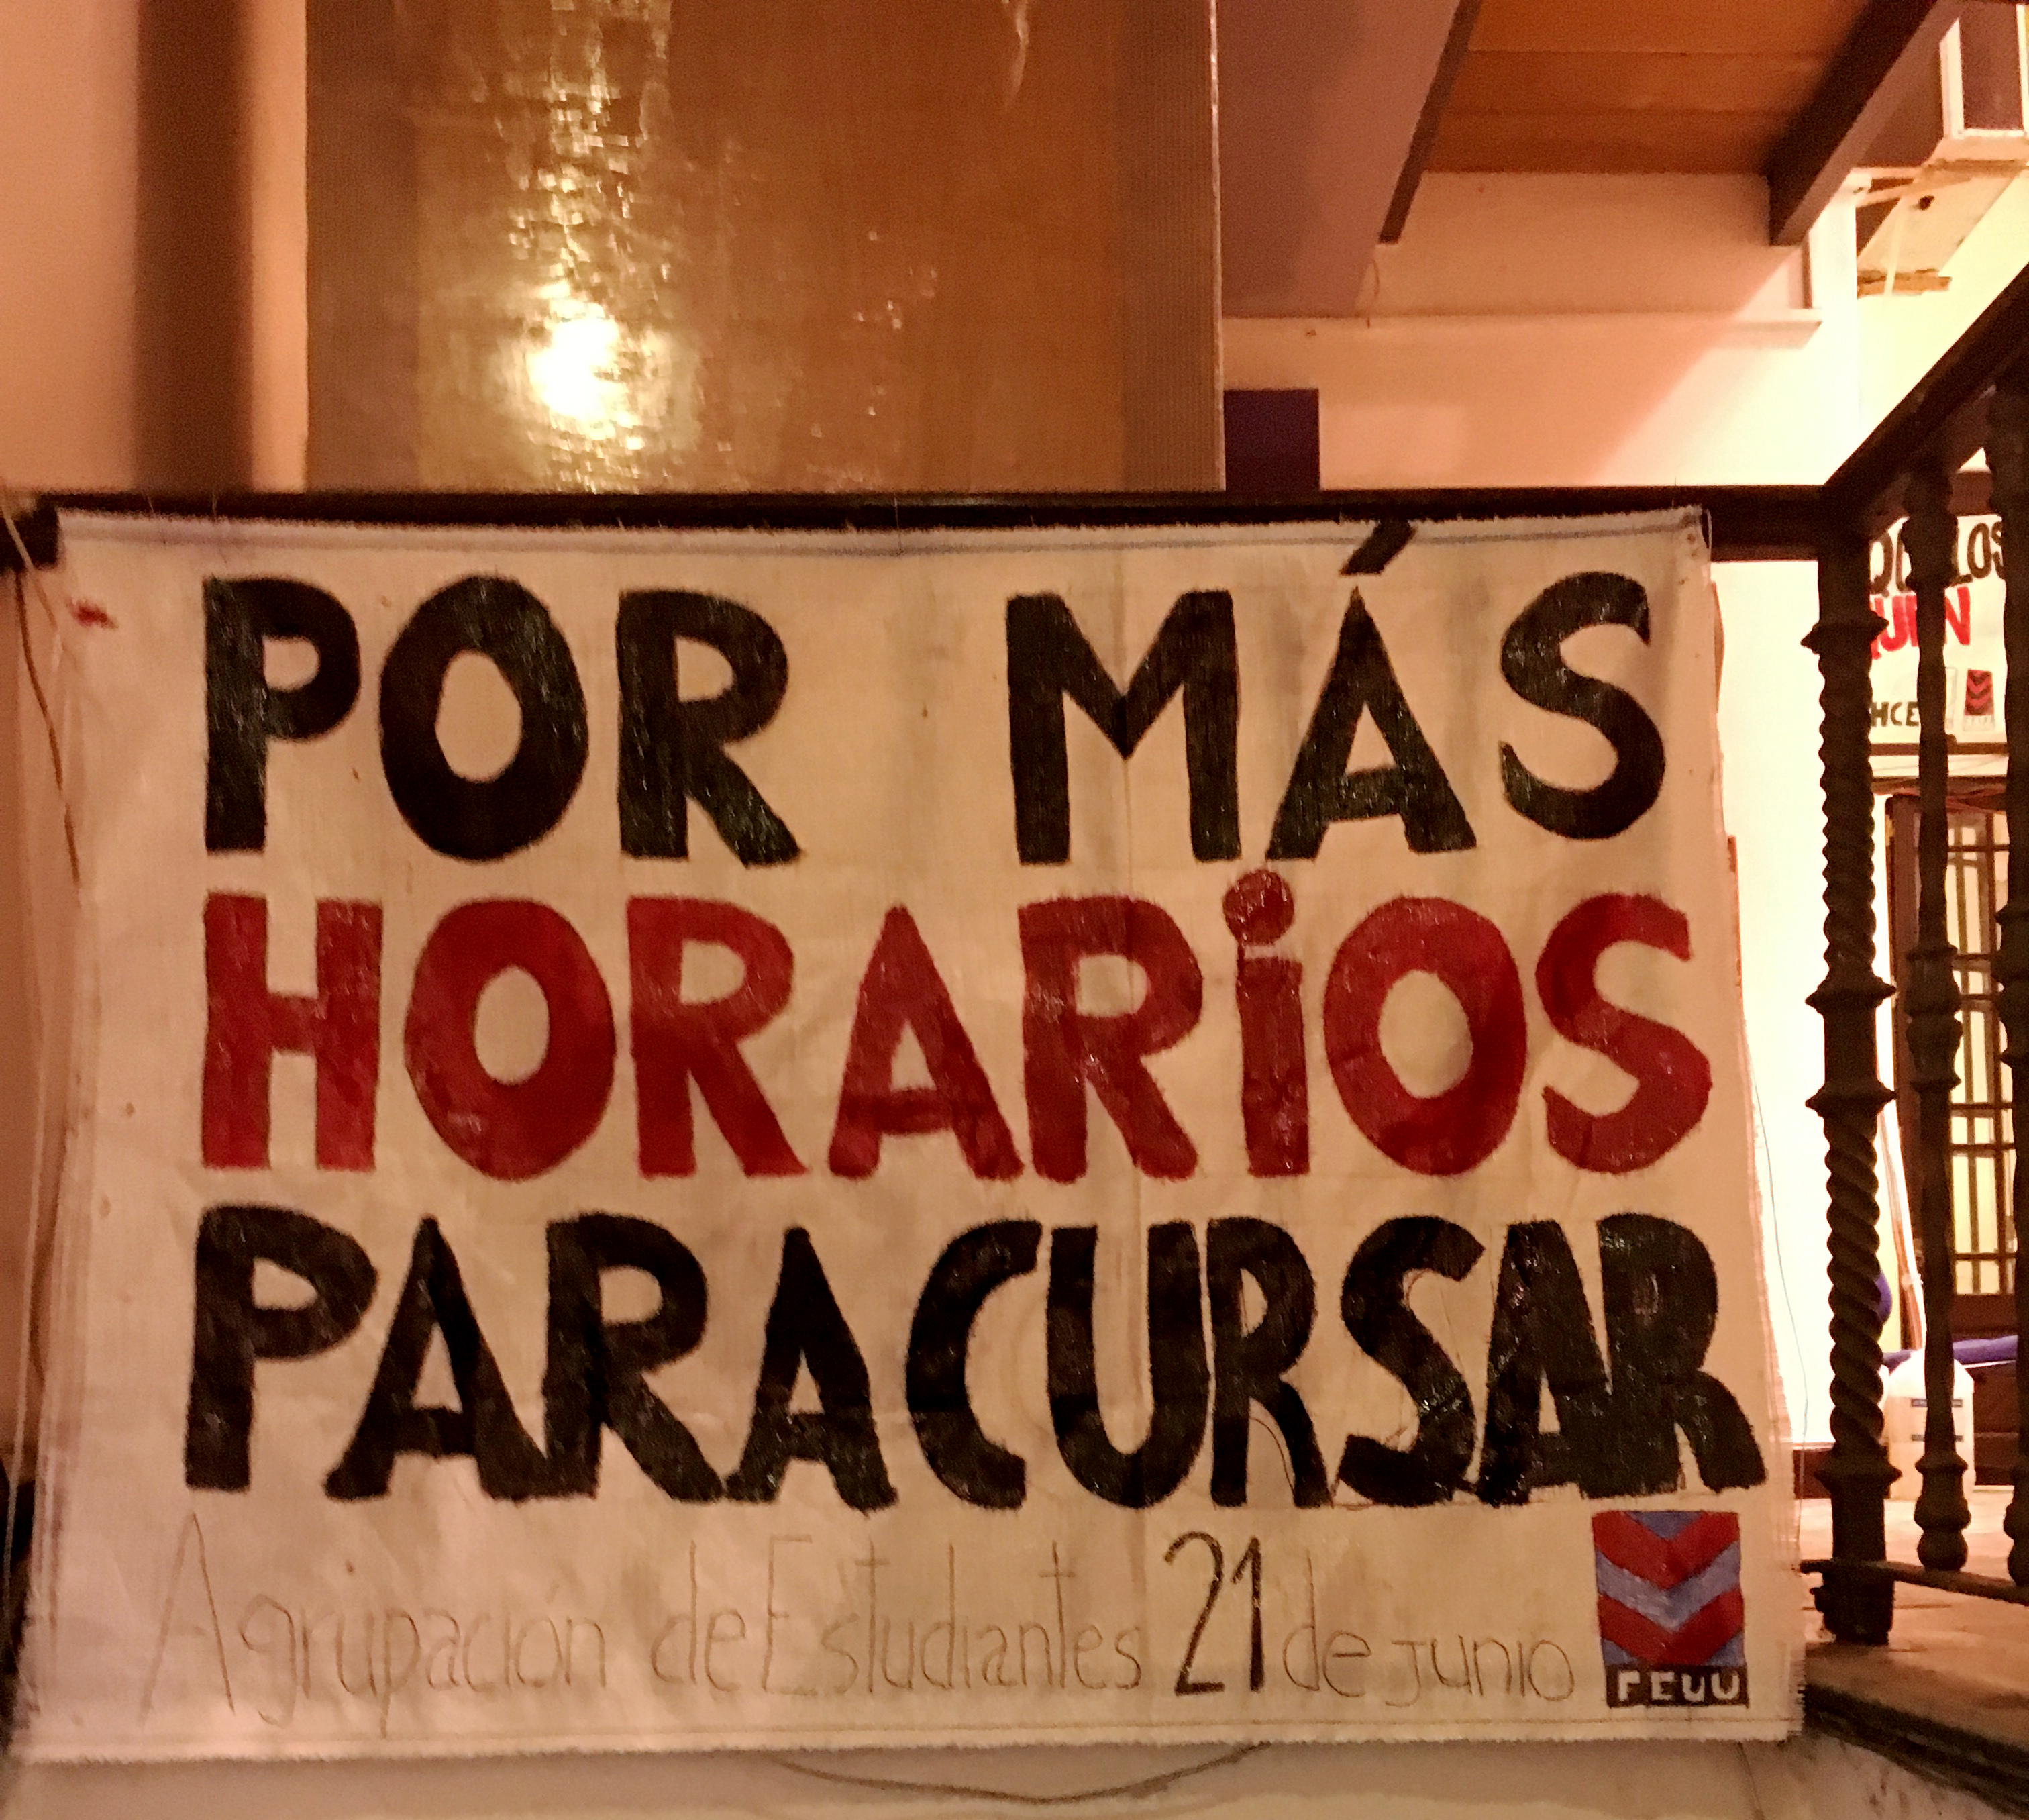 POR MÁS
HORARiOS
PARA CURSAR
Agrupación de Estudiantes 21 de junio
FEUU
LOS
HCE